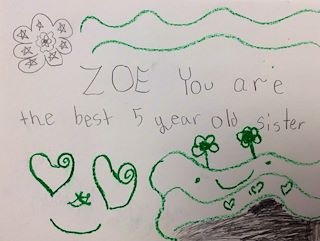 ZOE You are
the best 5 year old sister